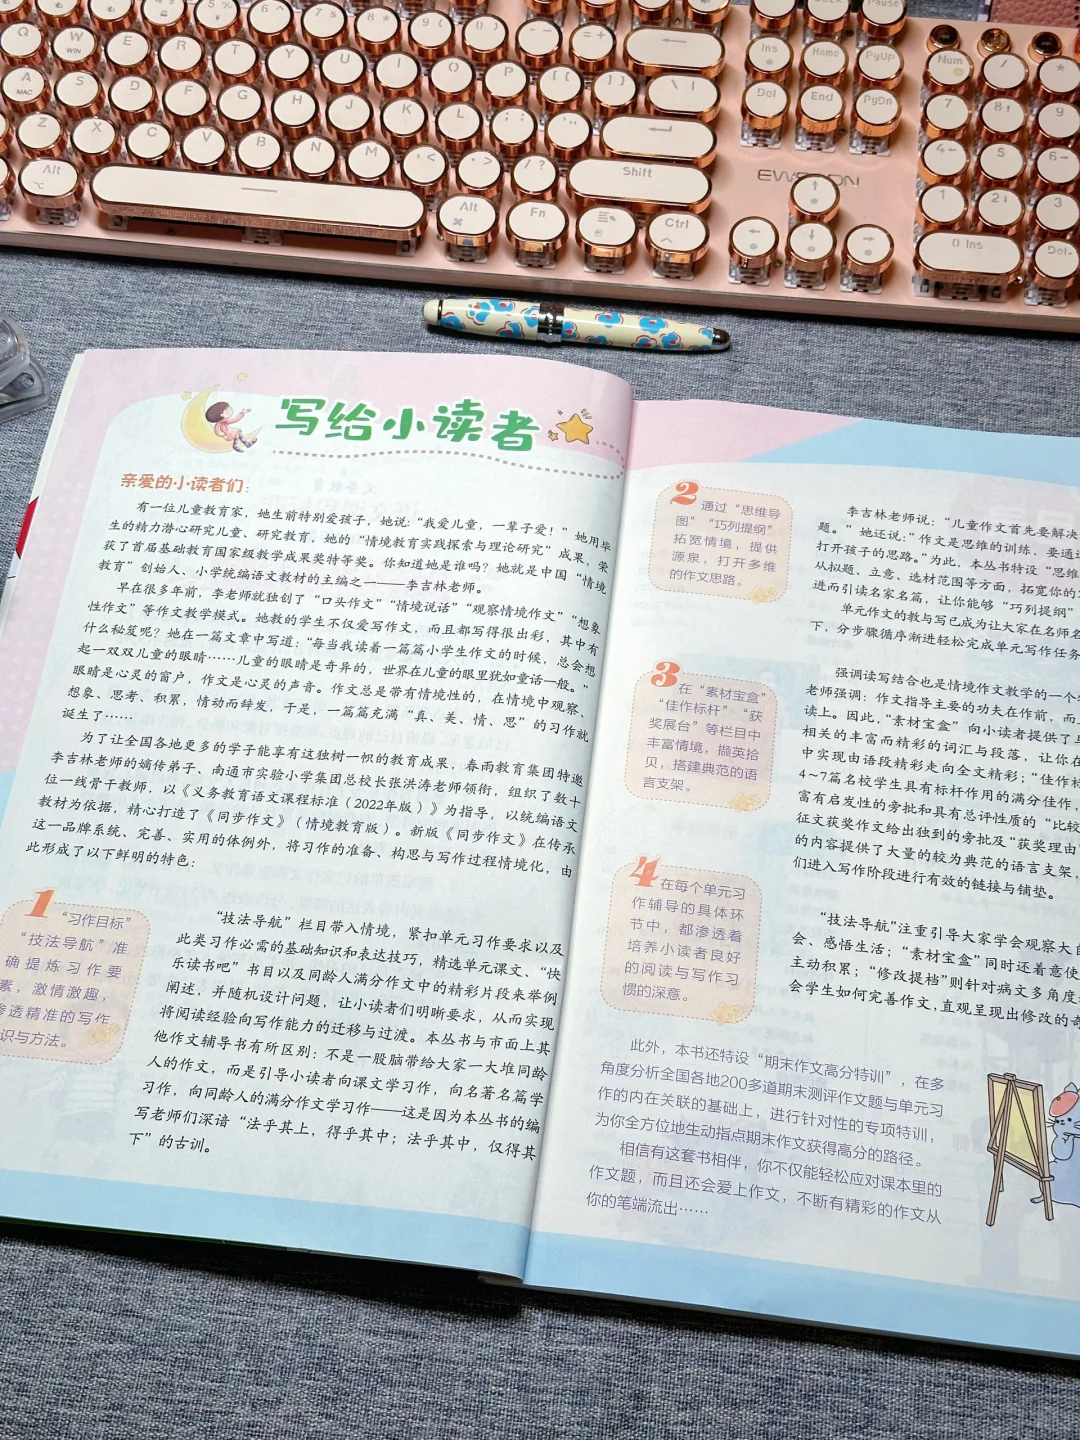 Q
W
WIN
E
R
T
Y
U
I
O
P
[ {
] }
\ |
A
MAC
S
D
F
G
H
J
K
L
; :
' "
Z
X
C
V
B
N
M
, <
. >
/ ?
Shift
Alt
Alt
Fn
Ctrl
Pause
Ins
Home
PyUp
Del
End
PyDn
Num
/
*
7
8
9
4
5
6
1
2
3
0 Ins
Del
写给小读者
亲爱的小读者们：
有一位儿童教育家，她生前特别爱孩子，她说：“我爱儿童，一辈子爱！”她用毕
生的精力潜心研究儿童、研究教育，她的“情境教育实践探索与理论研究”成果，荣
获了首届基础教育国家级教学成果奖特等奖。你知道她是谁吗？她就是中国“情境
教育”创始人、小学统编语文教材的主编之一——李吉林老师。
早在很多年前，李老师就独创了“口头作文”“情境说话”“观察情境作文”“想象
性作文”等作文教学模式。她教的学生不仅爱写作文，而且都写得很出彩，其中有
什么秘笈呢？她在一篇文章中写道：“每当我读着一篇篇小学生作文的时候，总会想
起一双双儿童的眼睛……儿童的眼睛是奇异的，世界在儿童的眼里犹如童话一般。”
眼睛是心灵的窗户，作文是心灵的声音。作文总是带有情境性的，在情境中观察、
想象、思考、积累，情动而辞发，于是，一篇篇充满“真、美、情、思”的习作就
诞生了……
为了让全国各地更多的学子能享有这独树一帜的教育成果，春雨教育集团特邀
李吉林老师的嫡传弟子、南通市实验小学集团总校长张洪涛老师领衔，组织了数十
位一线骨干教师，以《义务教育语文课程标准（2022年版）》为指导，以统编语文
教材为依据，精心打造了《同步作文》（情境教育版）。新版《同步作文》在传承
这一品牌系统、完善、实用的体例外，将习作的准备、构思与写作过程情境化，由
此形成了以下鲜明的特色：
1
“习作目标”
“技法导航”准
确提炼习作要
素，激情激趣，
渗透精准的写作
识与方法。
“技法导航”栏目带入情境，紧扣单元习作要求以及
此类习作必需的基础知识和表达技巧，精选单元课文、“快
乐读书吧”书目以及同龄人满分作文中的精彩片段来举例
阐述，并随机设计问题，让小读者们明晰要求，从而实现
将阅读经验向写作能力的迁移与过渡。本丛书与市面上其
他作文辅导书有所区别：不是一股脑带给大家一大堆同龄
人的作文，而是引导小读者向课文学习作，向名著名篇学
习作，向同龄人的满分作文学习作——这是因为本丛书的编
写老师们深谙“法乎其上，得乎其中；法乎其中，仅得其
下”的古训。
2
通过“思维导
图”“巧列提纲”
拓宽情境，提供
源泉，打开多维
的作文思路。
李吉林老师说：“儿童作文首先要解决
题。”她还说：“作文是思维的训练，要通过
打开孩子的思路。”为此，本丛书特设“思维
从拟题、立意、选材范围等方面，拓宽你的
进而引读名家名篇，让你能够“巧列提纲”
单元作文的教与写已成为让大家在名师名
下，分步骤循序渐进轻松完成单元写作任务
3
在“素材宝盒”
“佳作标杆”“获
奖展台”等栏目中
丰富情境，撷英拾
贝，搭建典范的语
言支架。
强调读写结合也是情境作文教学的一个
老师强调：作文指导主要的功夫在作前，而
读上。因此，“素材宝盒”向小读者提供了与
相关的丰富而精彩的词汇与段落，让你在
中实现由语段精彩走向全文精彩；“佳作标
4～7篇名校学生具有标杆作用的满分佳作，
富有启发性的旁批和具有总评性质的“比较
征文获奖作文给出独到的旁批及“获奖理由
的内容提供了大量的较为典范的语言支架，
们进入写作阶段进行有效的链接与铺垫。
4
在每个单元习
作辅导的具体环
节中，都渗透着
培养小读者良好
的阅读与写作习
惯的深意。
“技法导航”注重引导大家学会观察大自
会、感悟生活；“素材宝盒”同时还着意使
主动积累；“修改提档”则针对病文多角度
会学生如何完善作文，直观呈现出修改的奇
此外，本书还特设“期末作文高分特训”，在多
角度分析全国各地200多道期末测评作文题与单元习
作的内在关联的基础上，进行针对性的专项特训，
为你全方位地生动指点期末作文获得高分的路径。
相信有这套书相伴，你不仅能轻松应对课本里的
作文题，而且还会爱上作文，不断有精彩的作文从
你的笔端流出……